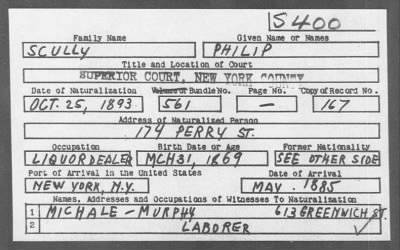 S400
Family Name Given Name or Names
SCULLY PHILIP
Title and Location of Court
SUPERIOR COURT, NEW YORK COUNTY
Date of Naturalization Volume or Bundle No. Page No. Copy of Record No.
OCT. 25, 1893 561 — 167
Address of Naturalized Person
174 PERRY ST.
Occupation Birth Date or Age Former Nationality
LIQUOR DEALER MCH 31, 1869 SEE OTHER SIDE
Port of Arrival in the United States Date of Arrival
NEW YORK, N.Y. MAY. 1885
Names, Addresses and Occupations of Witnesses To Naturalization
1 MICHALE - MURPHY 613 GREENWICH ST.
2 LABORER